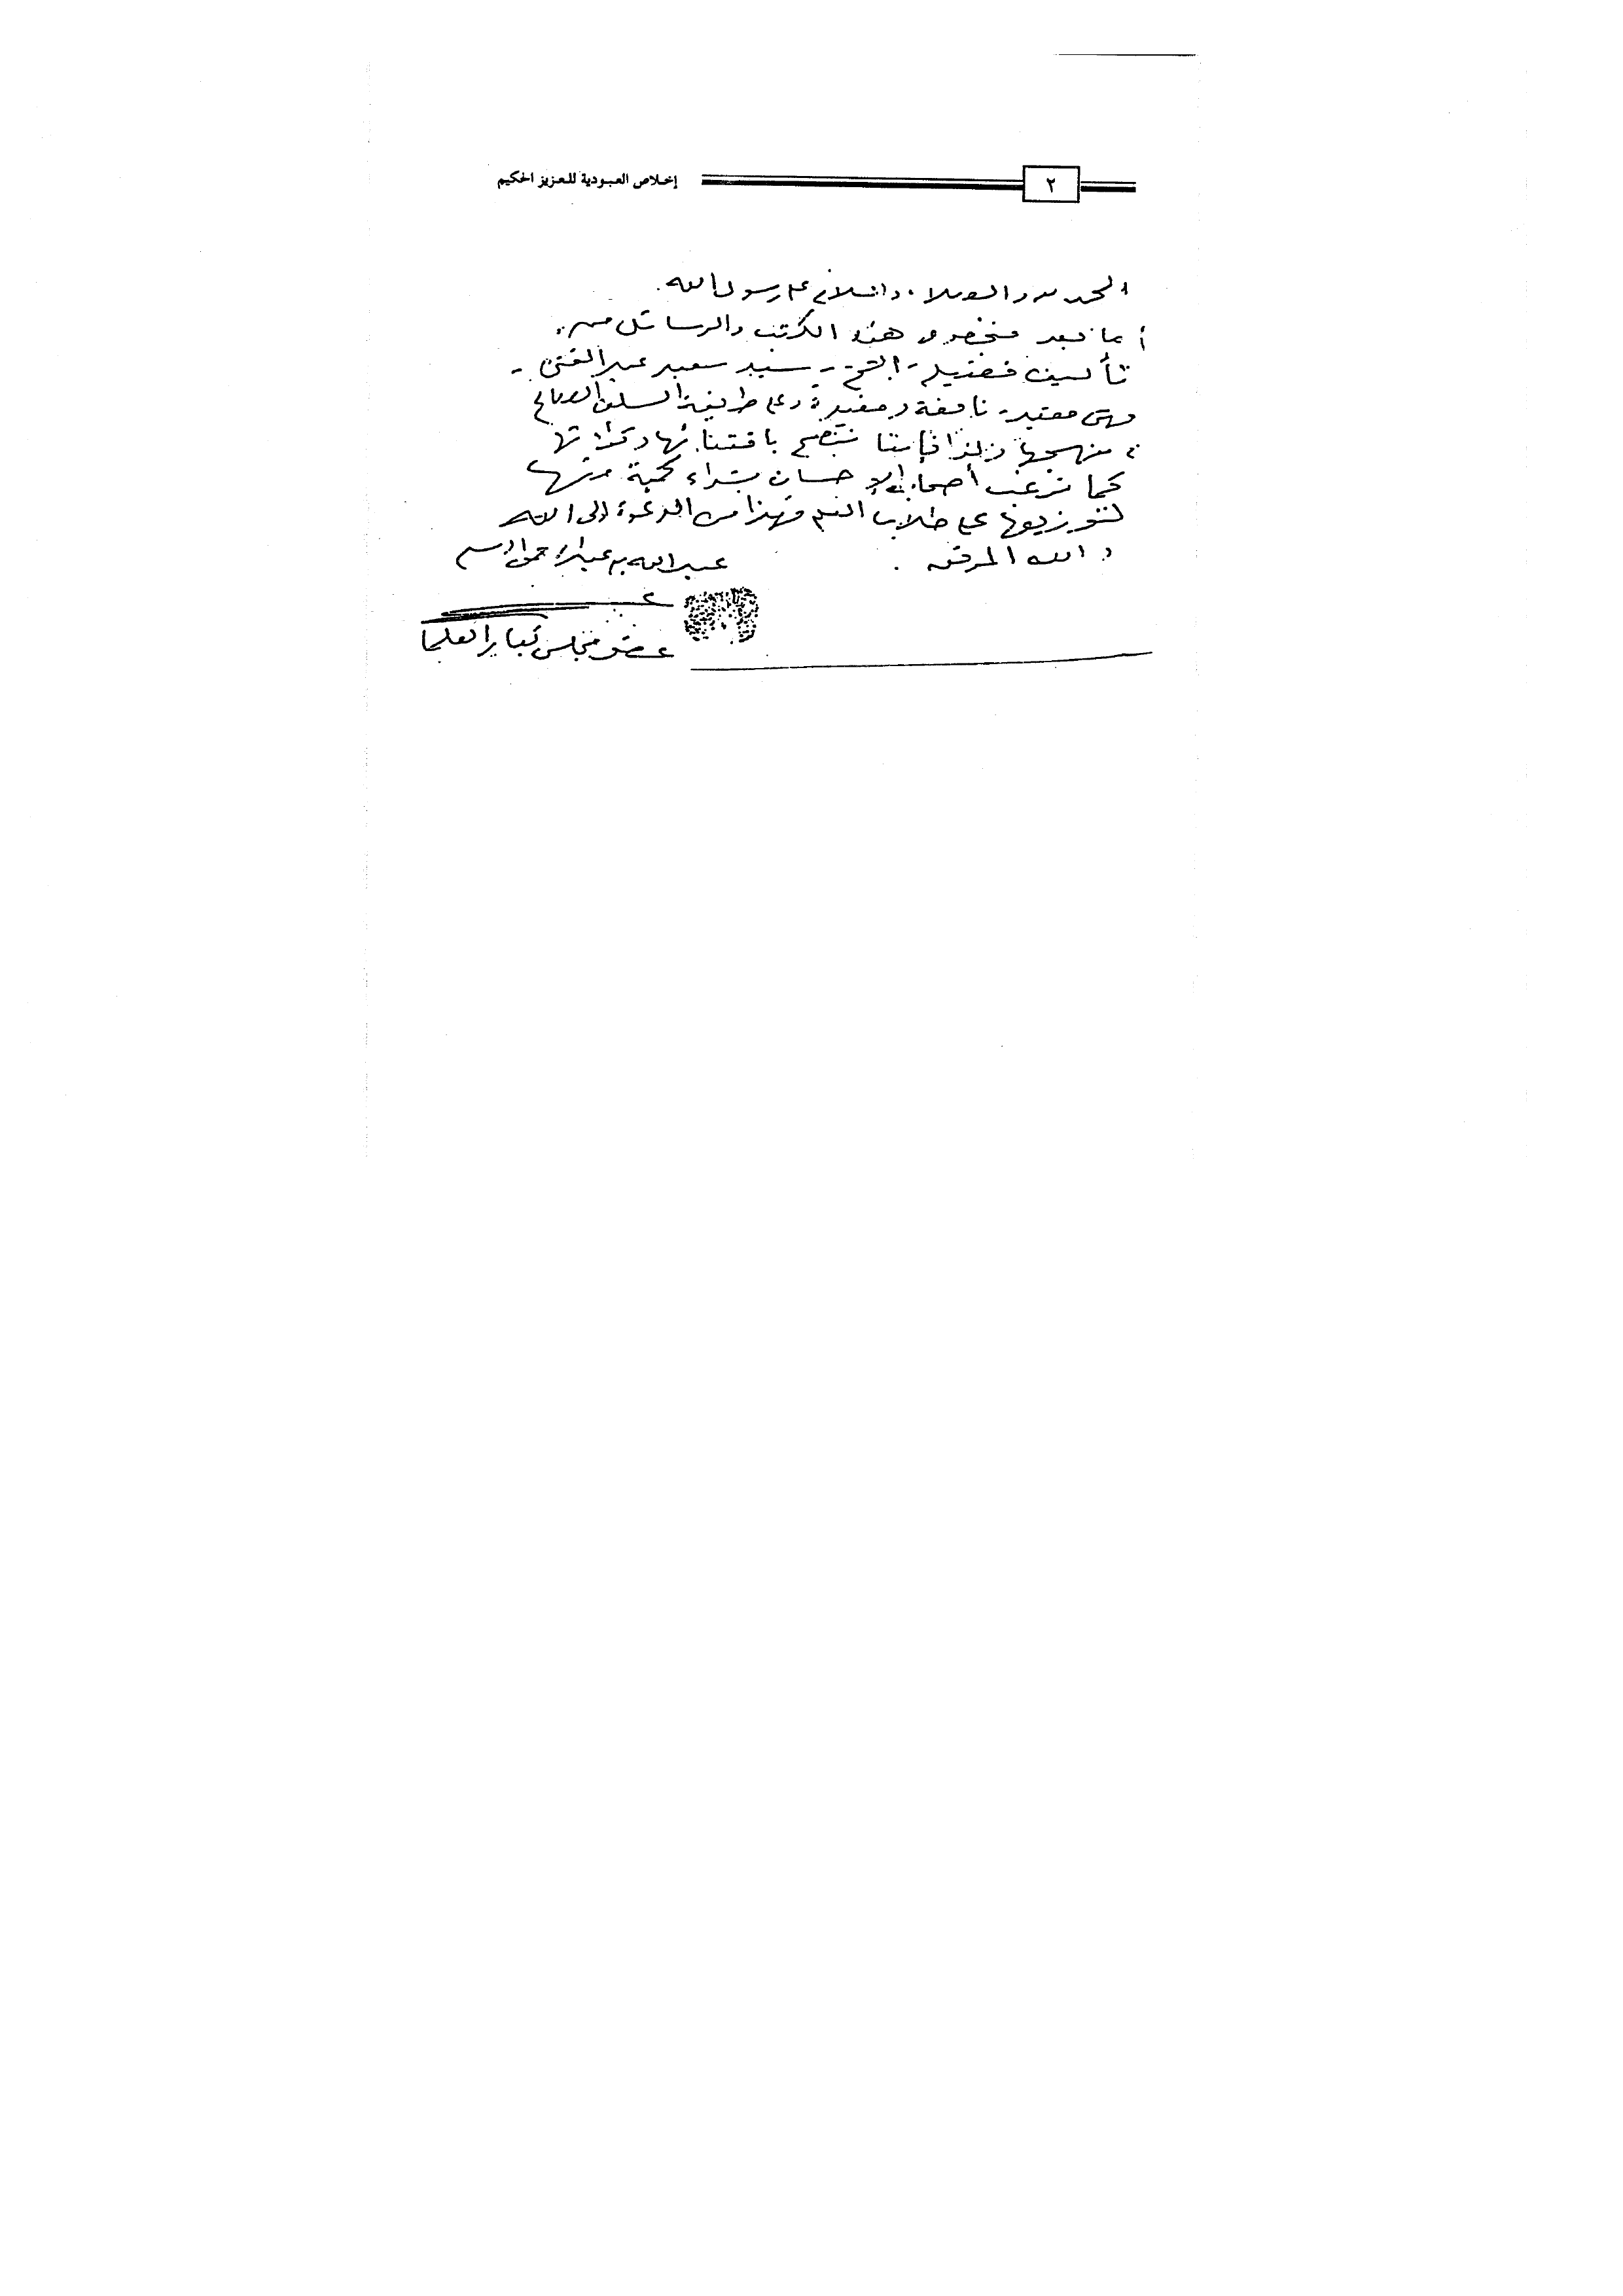 ٢
إخلاص العبودية للعزيز الحكيم
الحمد لله والصلاة والسلام على رسول الله.
أما بعد هذه الكتب والرسائل من
تأليف فضيلة الشيخ - سيد سعيد عبد الغني -
وهي مفيدة نافعة ومفيدة وعلى طريقة السلف الصالح
منهجها ولذا فإننا ننصح باقتنائها
كما نرغب أصحاب الإحسان بشراء كمية منها
لتوزيعها على طلاب العلم فهذا من الدعوة إلى الله
والله الموفق.
عبد الله بن عبد الرحمن
عضو مجلس كبار العلما